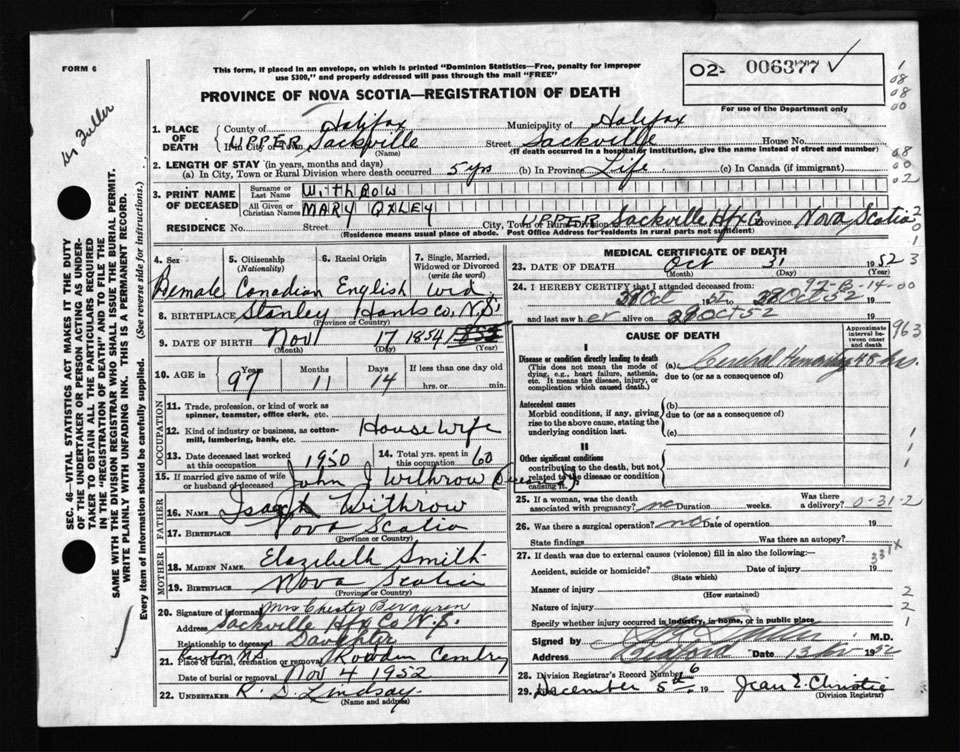 FORM 6
This form, if placed in an envelope, on which is printed "Dominion Statistics—Free, penalty for improper
use $300," and properly addressed will pass through the mail "FREE"
02- 006377 ✓
For use of the Department only
PROVINCE OF NOVA SCOTIA—REGISTRATION OF DEATH
Dr Fuller
1. PLACE OF DEATH
County of Halifax Municipality of Halifax
UPPER Sackville Street Sackville House No.
(Name) (If death occurred in a hospital or institution, give the name instead of street and number)
2. LENGTH OF STAY (in years, months and days)
(a) In City, Town or Rural Division where death occurred 5 yrs (b) In Province Life (c) In Canada (if immigrant)
3. PRINT NAME OF DECEASED
Surname or Last Name WithRow
All Given or Christian Names MARY OXLEY
RESIDENCE No. Street City, Town or Rural Division UPPER Sackville Hfx Co Province Nova Scotia
(Residence means usual place of abode. Post Office Address for residents in rural parts not sufficient)
4. Sex 5. Citizenship (Nationality) 6. Racial Origin 7. Single, Married, Widowed or Divorced (write the word)
Female Canadian English Wid.
8. BIRTHPLACE Stanley Hants co, N.S.
(Province or Country)
9. DATE OF BIRTH Nov 17 1854
(Month) (Day) (Year)
10. AGE in 97 Years 11 Months 14 Days If less than one day old
hrs. or min.
OCCUPATION
11. Trade, profession, or kind of work as
spinner, teamster, office clerk, etc.
12. Kind of industry or business, as cotton-
mill, lumbering, bank, etc. House Wife
13. Date deceased last worked at this occupation 1950 14. Total years spent in this occupation 60
15. If married give name of wife or husband of deceased John J Withrow
FATHER
16. NAME Isaack Withrow
17. BIRTHPLACE Nova Scotia
(Province or Country)
MOTHER
18. MAIDEN NAME Elazibeth Smith
19. BIRTHPLACE Nova Scotia
(Province or Country)
20. Signature of informant Mrs Chester
Address Sackville Hfx Co N.S.
Relationship to deceased Daughter
21. Place of burial, cremation or removal Rawdon N.S. Rowden Cemtry
Date of burial or removal Nov 4 1952
22. Undertaker R. D. Lindsay
(Name and address)
MEDICAL CERTIFICATE OF DEATH
23. DATE OF DEATH Oct 31 1952
(Month) (Day) (Year)
24. I HEREBY CERTIFY that I attended deceased from:
Oct 52 Oct 52
and last saw her alive on Oct 52
CAUSE OF DEATH
Approximate interval between onset and death
I
Disease or condition directly leading to death
(This does not mean the mode of
dying, e.g., heart failure, asthenia,
etc. It means the disease, injury, or
complication which caused death.)
(a) Cerebral 48 hrs.
due to (or as a consequence of)
Antecedent causes
Morbid conditions, if any, giving
rise to the above cause, stating the
underlying condition last.
(b)
due to (or as a consequence of)
(c)
II
Other significant conditions
contributing to the death, but not
related to the disease or condition
causing it.
25. If a woman, was the death associated with pregnancy? no Duration weeks. Was there a delivery?
26. Was there a surgical operation? no. Date of operation 19
State findings Was there an autopsy?
27. If death was due to external causes (violence) fill in also the following:—
Accident, suicide or homicide? Date of injury 19
(State which)
Manner of injury
(How sustained)
Nature of injury
Specify whether injury occurred in industry, in home, or in public place
Signed by M.D.
Address Bedford Date 13 1952
28. Division Registrar's Record Number 6
29. December 5th 19 Jean E. Christie
(Division Registrar)
SEC. 46—VITAL STATISTICS ACT MAKES IT THE DUTY
OF THE UNDERTAKER OR PERSON ACTING AS UNDER-
TAKER TO OBTAIN ALL THE PARTICULARS REQUIRED
IN THE "REGISTRATION OF DEATH" AND TO FILE THE
SAME WITH THE DIVISION REGISTRAR WHO SHALL ISSUE THE BURIAL PERMIT.
WRITE PLAINLY WITH UNFADING INK. THIS IS A PERMANENT RECORD.
Every item of information should be carefully supplied. (See reverse side for instructions.)